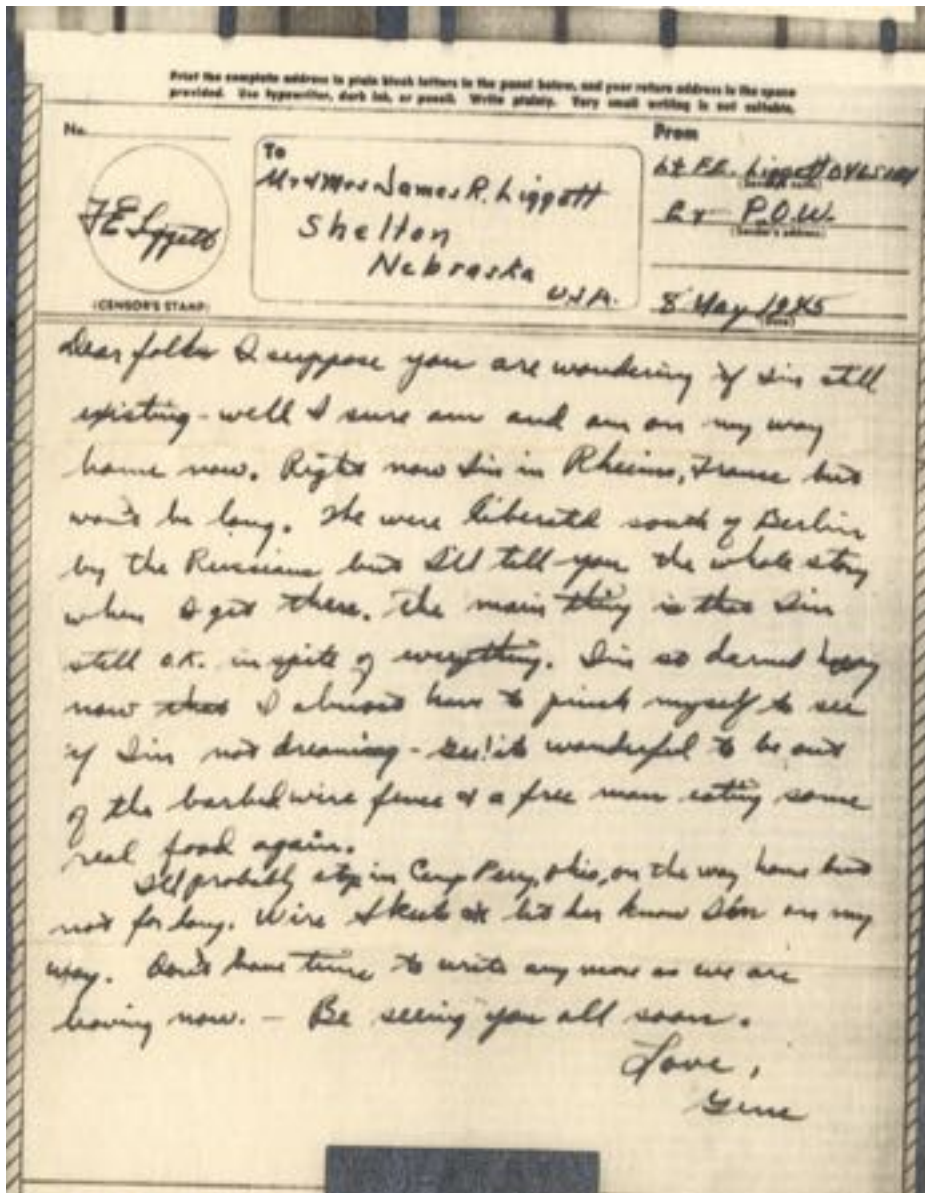 Print the complete address in plain block letters in the panel below, and your return address in the space
provided. Use typewriter, dark ink, or pencil. Write plainly. Very small writing is not suitable.
No.
F E Liggett
(CENSOR'S STAMP)
To
Mr & Mrs James R. Liggett
Shelton
Nebraska
U.S.A.
From
Lt F.E. Liggett
(Sender's name)
Ex P.O.W.
(Sender's address)
8 May 1945
(Date)
Dear folks I suppose you are wondering if I'm still
existing - well I sure am and am on my way
home now. Right now I'm in Rheims, France but
won't be long. We were liberated south of Berlin
by the Russians but I'll tell you the whole story
when I get there. The main thing is that I'm
still O.K. in spite of everything. I'm so darned happy
now that I almost have to pinch myself to see
if I'm not dreaming - Gee! its wonderful to be out
of the barbed wire fence & a free man eating some
real food again.
I'll probably stop in Camp Perry, Ohio, on the way home but
not for long. Wire & let her know I'm on my
way. Don't have time to write anymore as we are
leaving now. - Be seeing you all soon.
Love,
Gene